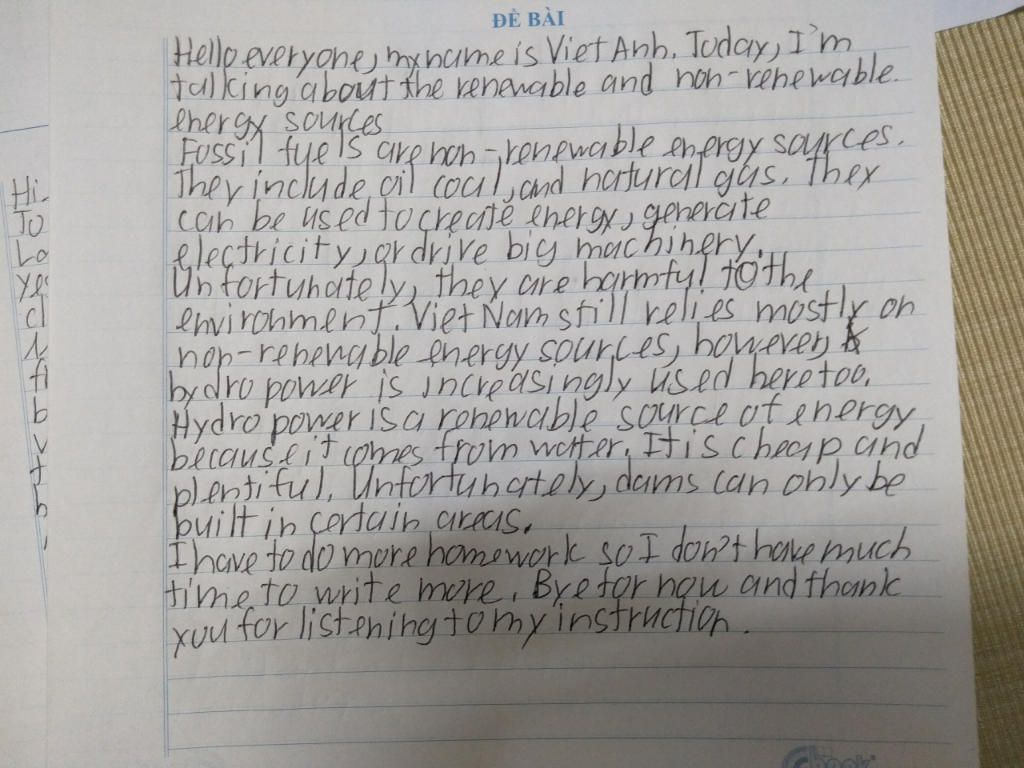 ĐỀ BÀI
Hello everyone, my name is Viet Anh. Today, I'm
talking about the renewable and non-renewable
energy sources
Fossil fuels are non-renewable energy sources.
They include oil coal, and natural gas. They
can be used to create energy, generate
electricity, or drive big machinery.
Unfortunately, they are harmful to the
environment. Viet Nam still relies mostly on
non-renewable energy sources, however,
hydro power is increasingly used here too.
Hydro power is a renewable source of energy
because it comes from water. It is cheap and
plentiful. Unfortunately, dams can only be
built in certain areas.
I have to do more homework so I don't have much
time to write more. Bye for now and thank
you for listening to my instruction.
Hi
To